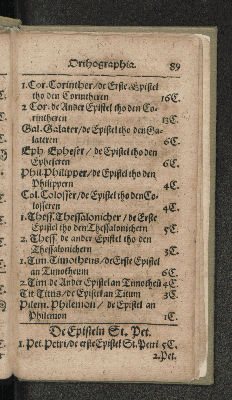 Orthographia. 89
1. Cor. Corinther / de Erste Epistel
tho den Corintheren 16C.
2 Cor. de Ander Epistel tho den Co-
rintheren 13C.
Gal. Galater / de Epistel tho den Ga-
lateren 6C.
Eph. Epheser / de Epistel tho den
Epheseren 6C.
Phil. Philipper / de Epistel tho den
Philippern 4C.
Col. Colosser / de Epistel tho den Co-
losseren 4C.
1. Thess. Thessalonicher / de Erste
Epistel tho den Thessalonichern 5C.
2. Thess. de ander Epistel tho den
Thessalonichern 3C.
1. Tim. Timotheus / de Erste Epistel
an Timotheum 6C.
2. Tim de Ander Epistel an Timotheū 4C.
Tit Titus / de Epistel an Titum 3C.
Pilem. Philemon / de Epistel an
Philemon 1C.
De Episteln St. Pet.
1. Pet. Petri / de erste Epistel St. Petri 5C.
2. Pet.